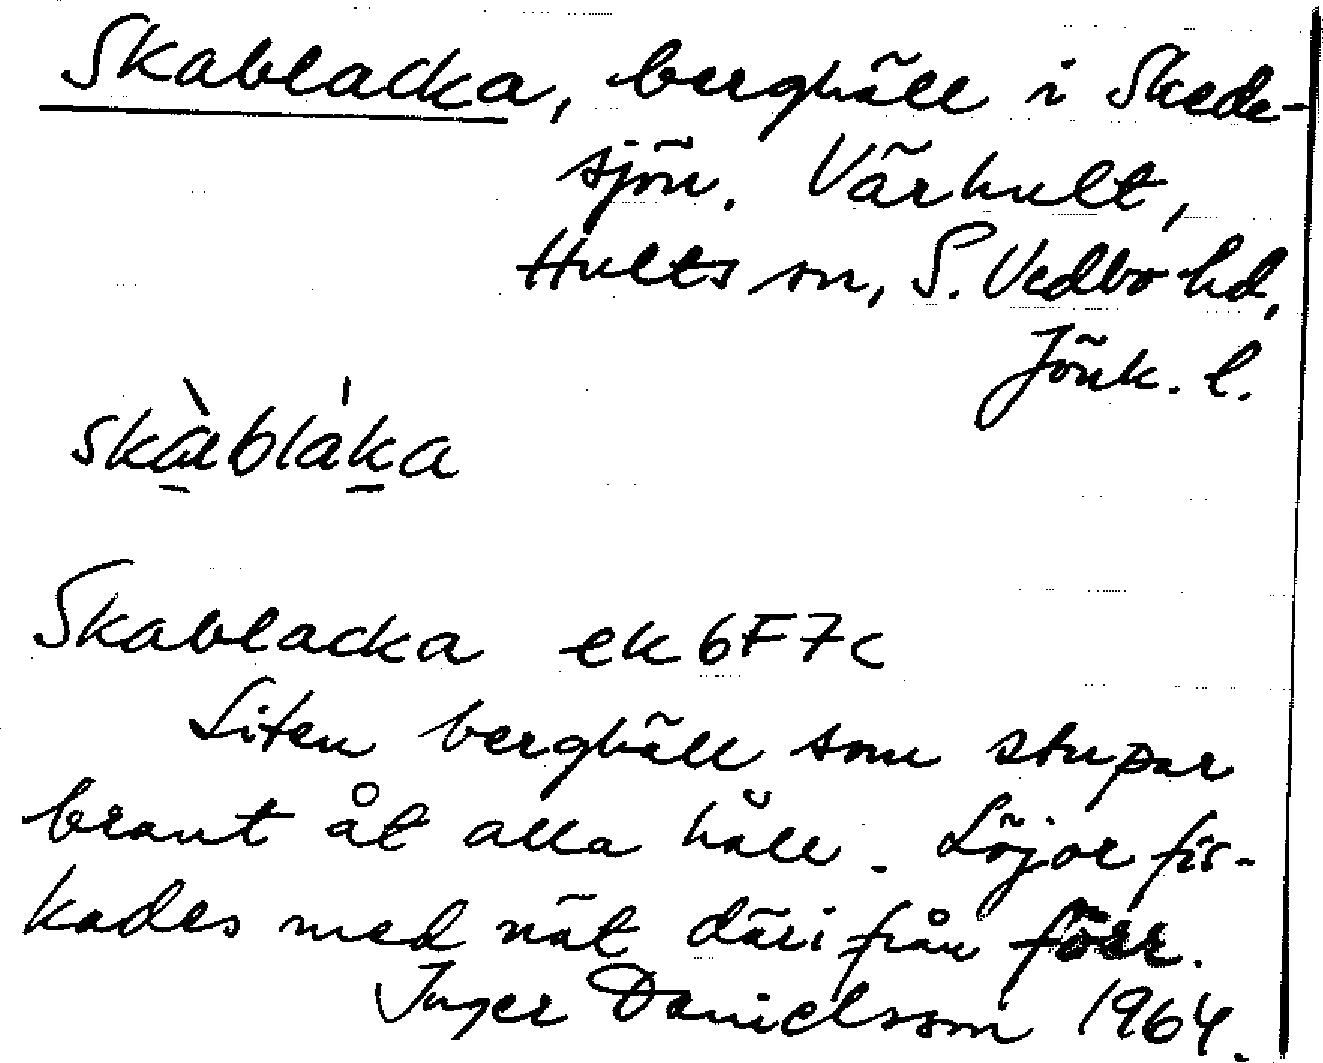 Skablacka, berghäll i Skede-
sjön. Värhult,
Hults sn, S. Vedbo hd,
Jönk. l.
skàbláka
Skablacka ek 6F7c
Liten berghäll som stupar
brant åt alla håll. Löjor fis-
kades med nät därifrån förr.
Inger Danielsson 1964.